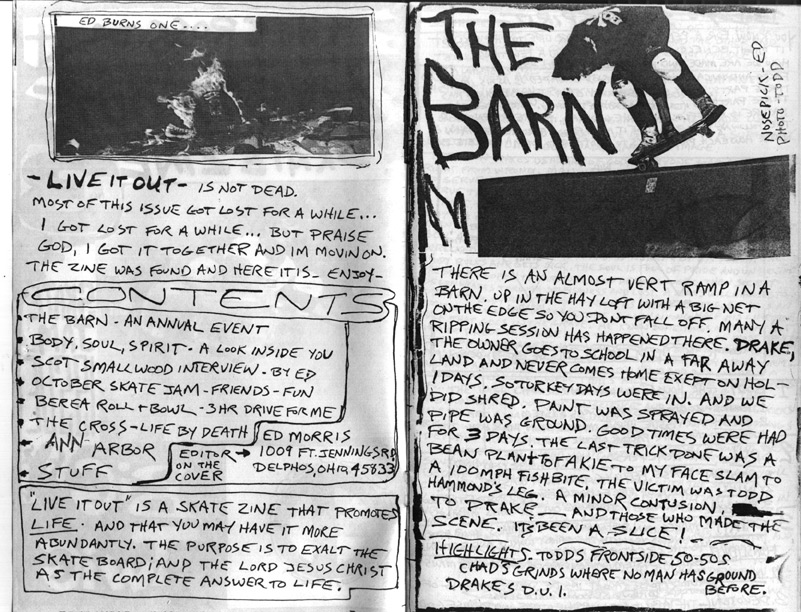 ED BURNS ONE....
-LIVE IT OUT- IS NOT DEAD.
MOST OF THIS ISSUE GOT LOST FOR A WHILE...
I GOT LOST FOR A WHILE... BUT PRAISE
GOD, I GOT IT TOGETHER AND IM MOVIN ON.
THE ZINE WAS FOUND AND HERE IT IS- ENJOY-
CONTENTS
THE BARN - AN ANNUAL EVENT
BODY, SOUL, SPIRIT - A LOOK INSIDE YOU
SCOT SMALLWOOD INTERVIEW - BY ED
OCTOBER SKATE JAM - FRIENDS - FUN
BEREA ROLL + BOWL - 3 HR DRIVE FOR ME
THE CROSS - LIFE BY DEATH
ANN ARBOR
STUFF
EDITOR
ON THE
COVER
ED MORRIS
1009 FT. JENNINGS RD
DELPHOS, OHIO 45833
"LIVE IT OUT" IS A SKATE ZINE THAT PROMOTES
LIFE. AND THAT YOU MAY HAVE IT MORE
ABUNDANTLY. THE PURPOSE IS TO EXALT THE
SKATE BOARD; AND THE LORD JESUS CHRIST
AS THE COMPLETE ANSWER TO LIFE.
THE
BARN
M
NOSEPICK - ED
PHOTO - TODD
THERE IS AN ALMOST VERT RAMP IN A
BARN. UP IN THE HAY LOFT WITH A BIG NET
ON THE EDGE SO YOU DONT FALL OFF. MANY A
RIPPING SESSION HAS HAPPENED THERE. DRAKE,
THE OWNER GOES TO SCHOOL IN A FAR AWAY
LAND AND NEVER COMES HOME EXEPT ON HOL-
IDAYS. SO TURKEY DAYS WERE IN. AND WE
DID SHRED. PAINT WAS SPRAYED AND
PIPE WAS GROUND. GOOD TIMES WERE HAD
FOR 3 DAYS. THE LAST TRICK DONE WAS A
BEAN PLANT TO FAKIE TO MY FACE SLAM TO
A 100MPH FISHBITE. THE VICTIM WAS TODD
HAMMOND'S LEG. A MINOR CONTUSION.
TO DRAKE — AND THOSE WHO MADE THE
SCENE. IT'S BEEN A SLICE!
HIGHLIGHTS. TODDS FRONTSIDE 50-50S
CHAD'S GRINDS WHERE NO MAN HAS GROUND
BEFORE.
DRAKE'S D.U.I.